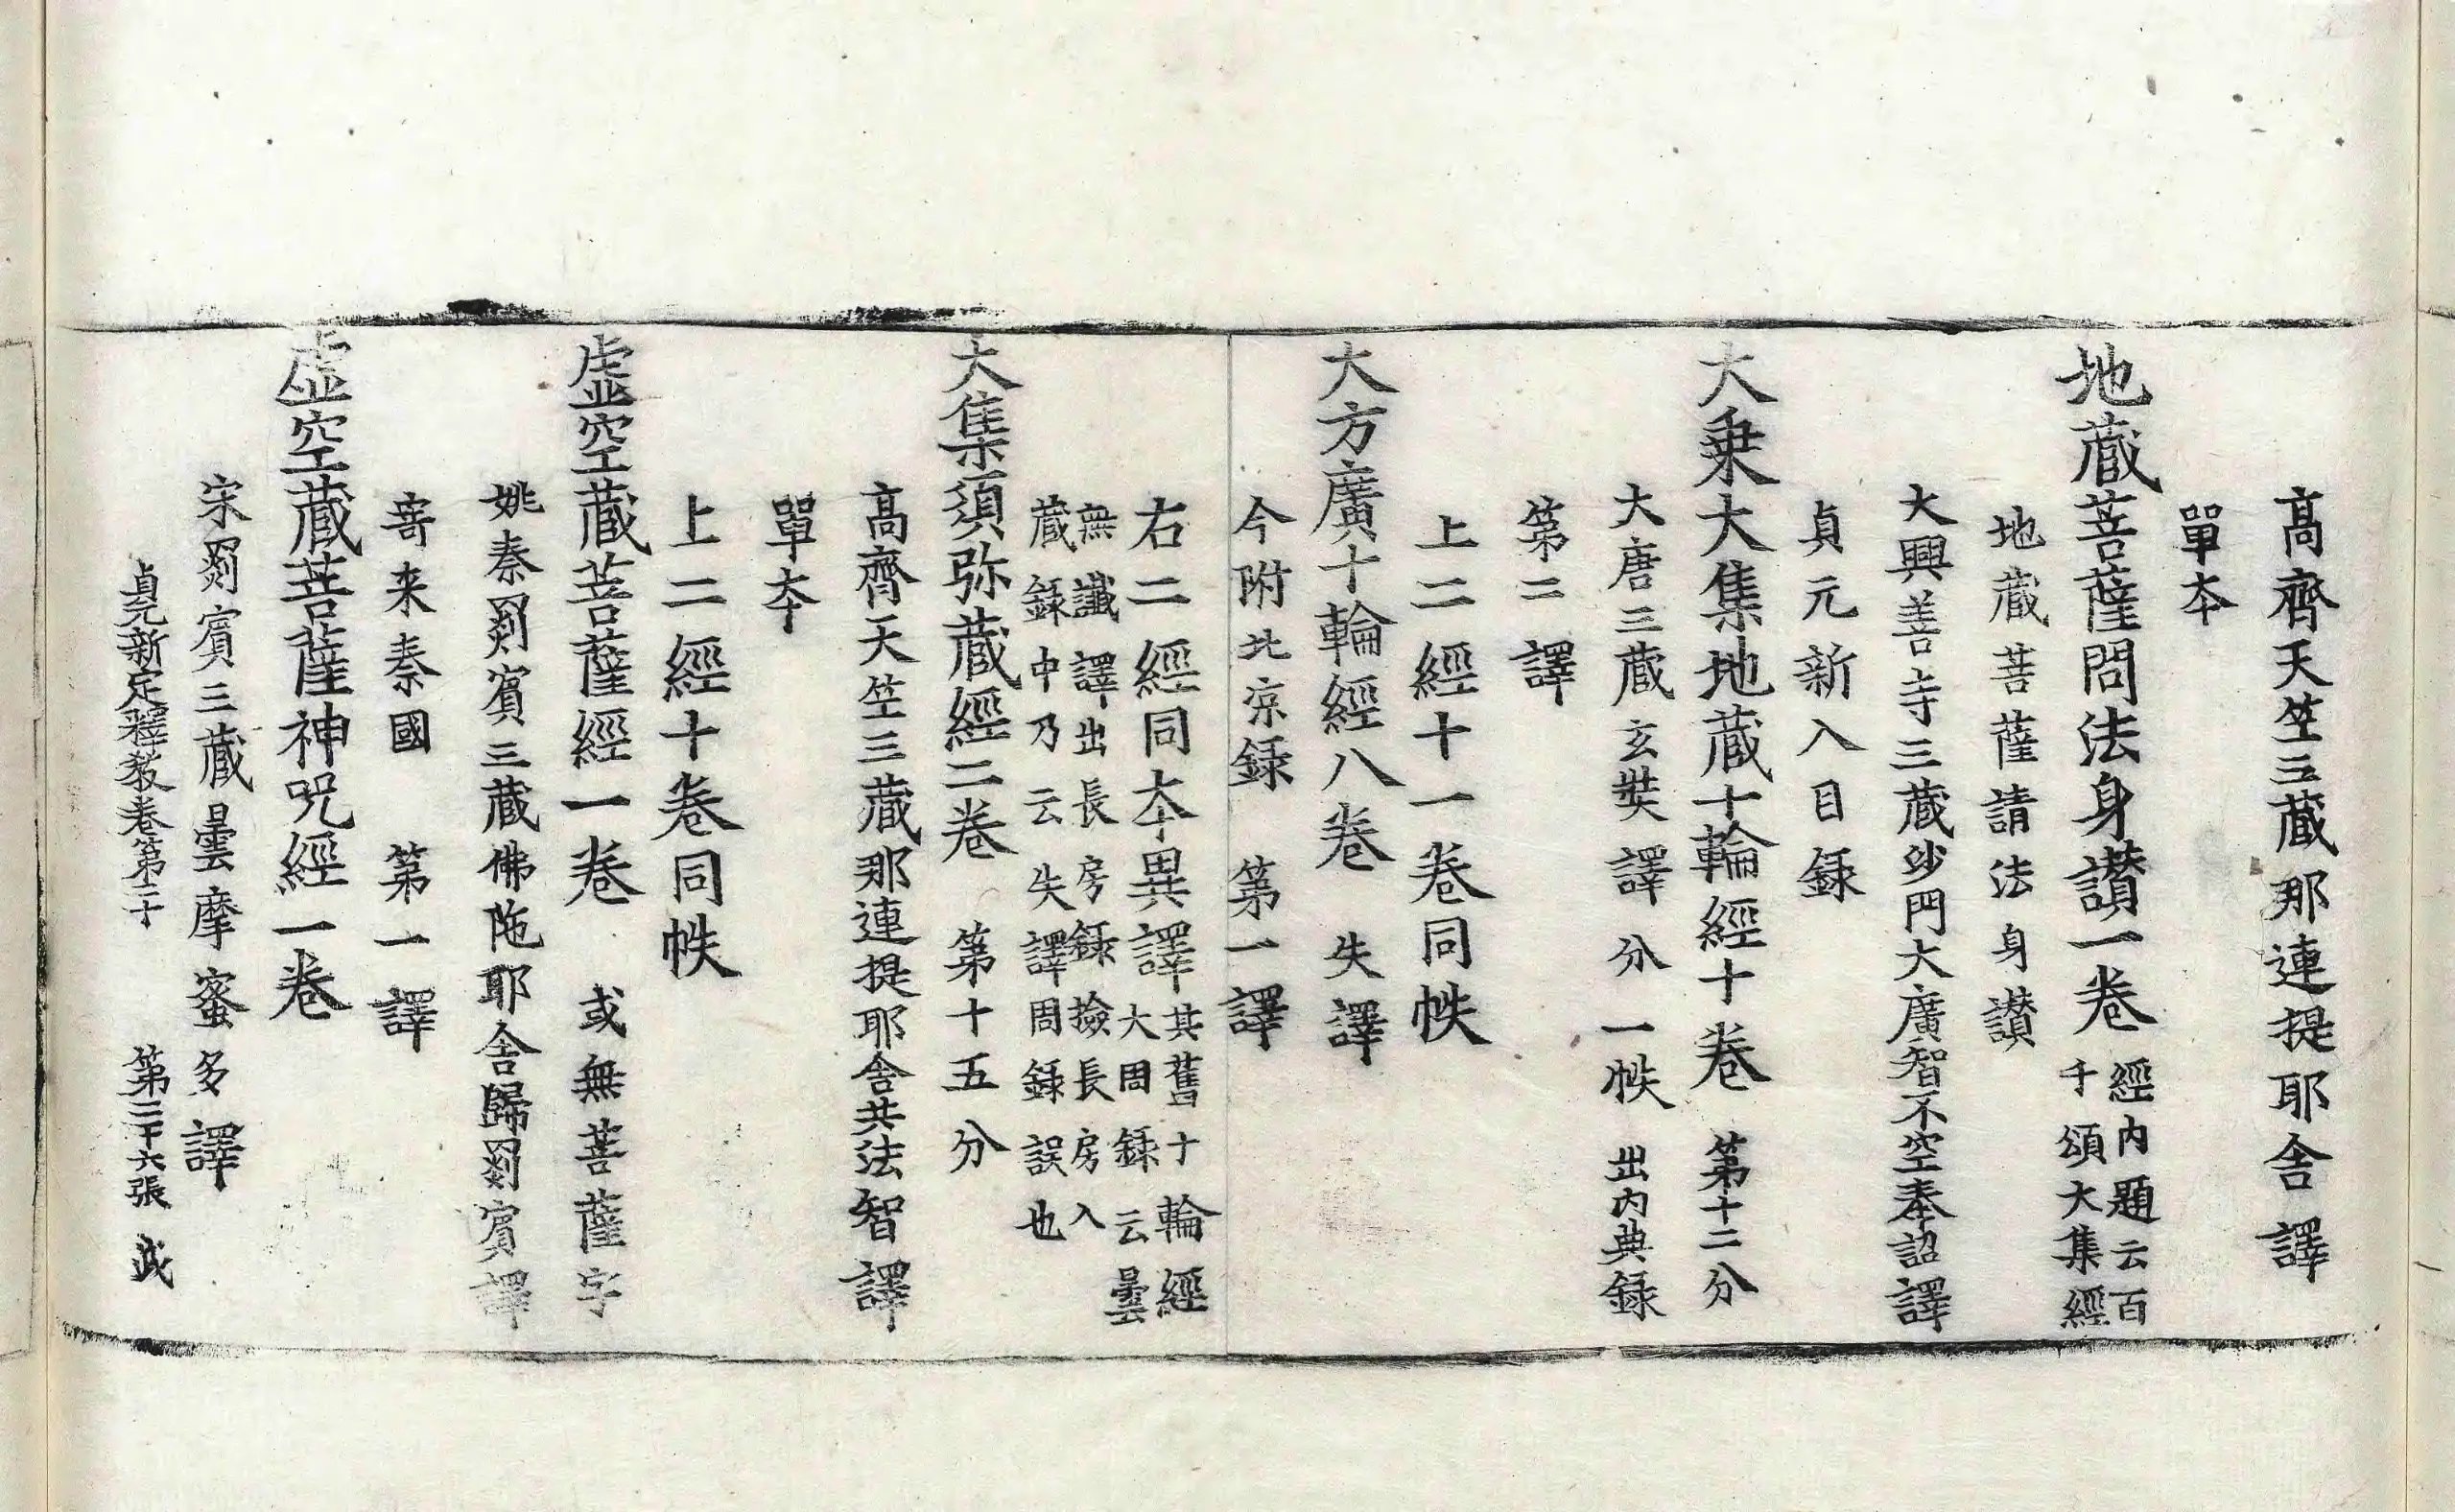 高齊天竺三藏那連提耶舍譯
單本
地藏菩薩問法身讚一卷
經内題云百
千頌大集經
地藏菩薩請法身讚
大興善寺三藏沙門大廣智不空奉詔譯
貞元新入目録
大乗大集地藏十輪經十卷　第十二分
大唐三藏玄奘譯　分一帙　出内典録
第二譯
上二經十一卷同帙
大方廣十輪經八卷　失譯
今附北凉録　第一譯
右二經同本異譯
其舊十輪經
大周録云曇
無讖譯出長房録撿長房入
藏録中乃云失譯周録誤也
大集須弥藏經二卷　第十五分
高齊天竺三藏那連提耶舍共法智譯
單本
上二經十卷同帙
虚空藏菩薩經一卷　或無菩薩字
姚秦罽賓三藏佛陁耶舍歸罽賓譯
寄来秦國　第一譯
虚空藏菩薩神呪經一卷
宋罽賓三藏曇摩蜜多譯
貞元新定釋教卷第二十　第二十六張　武